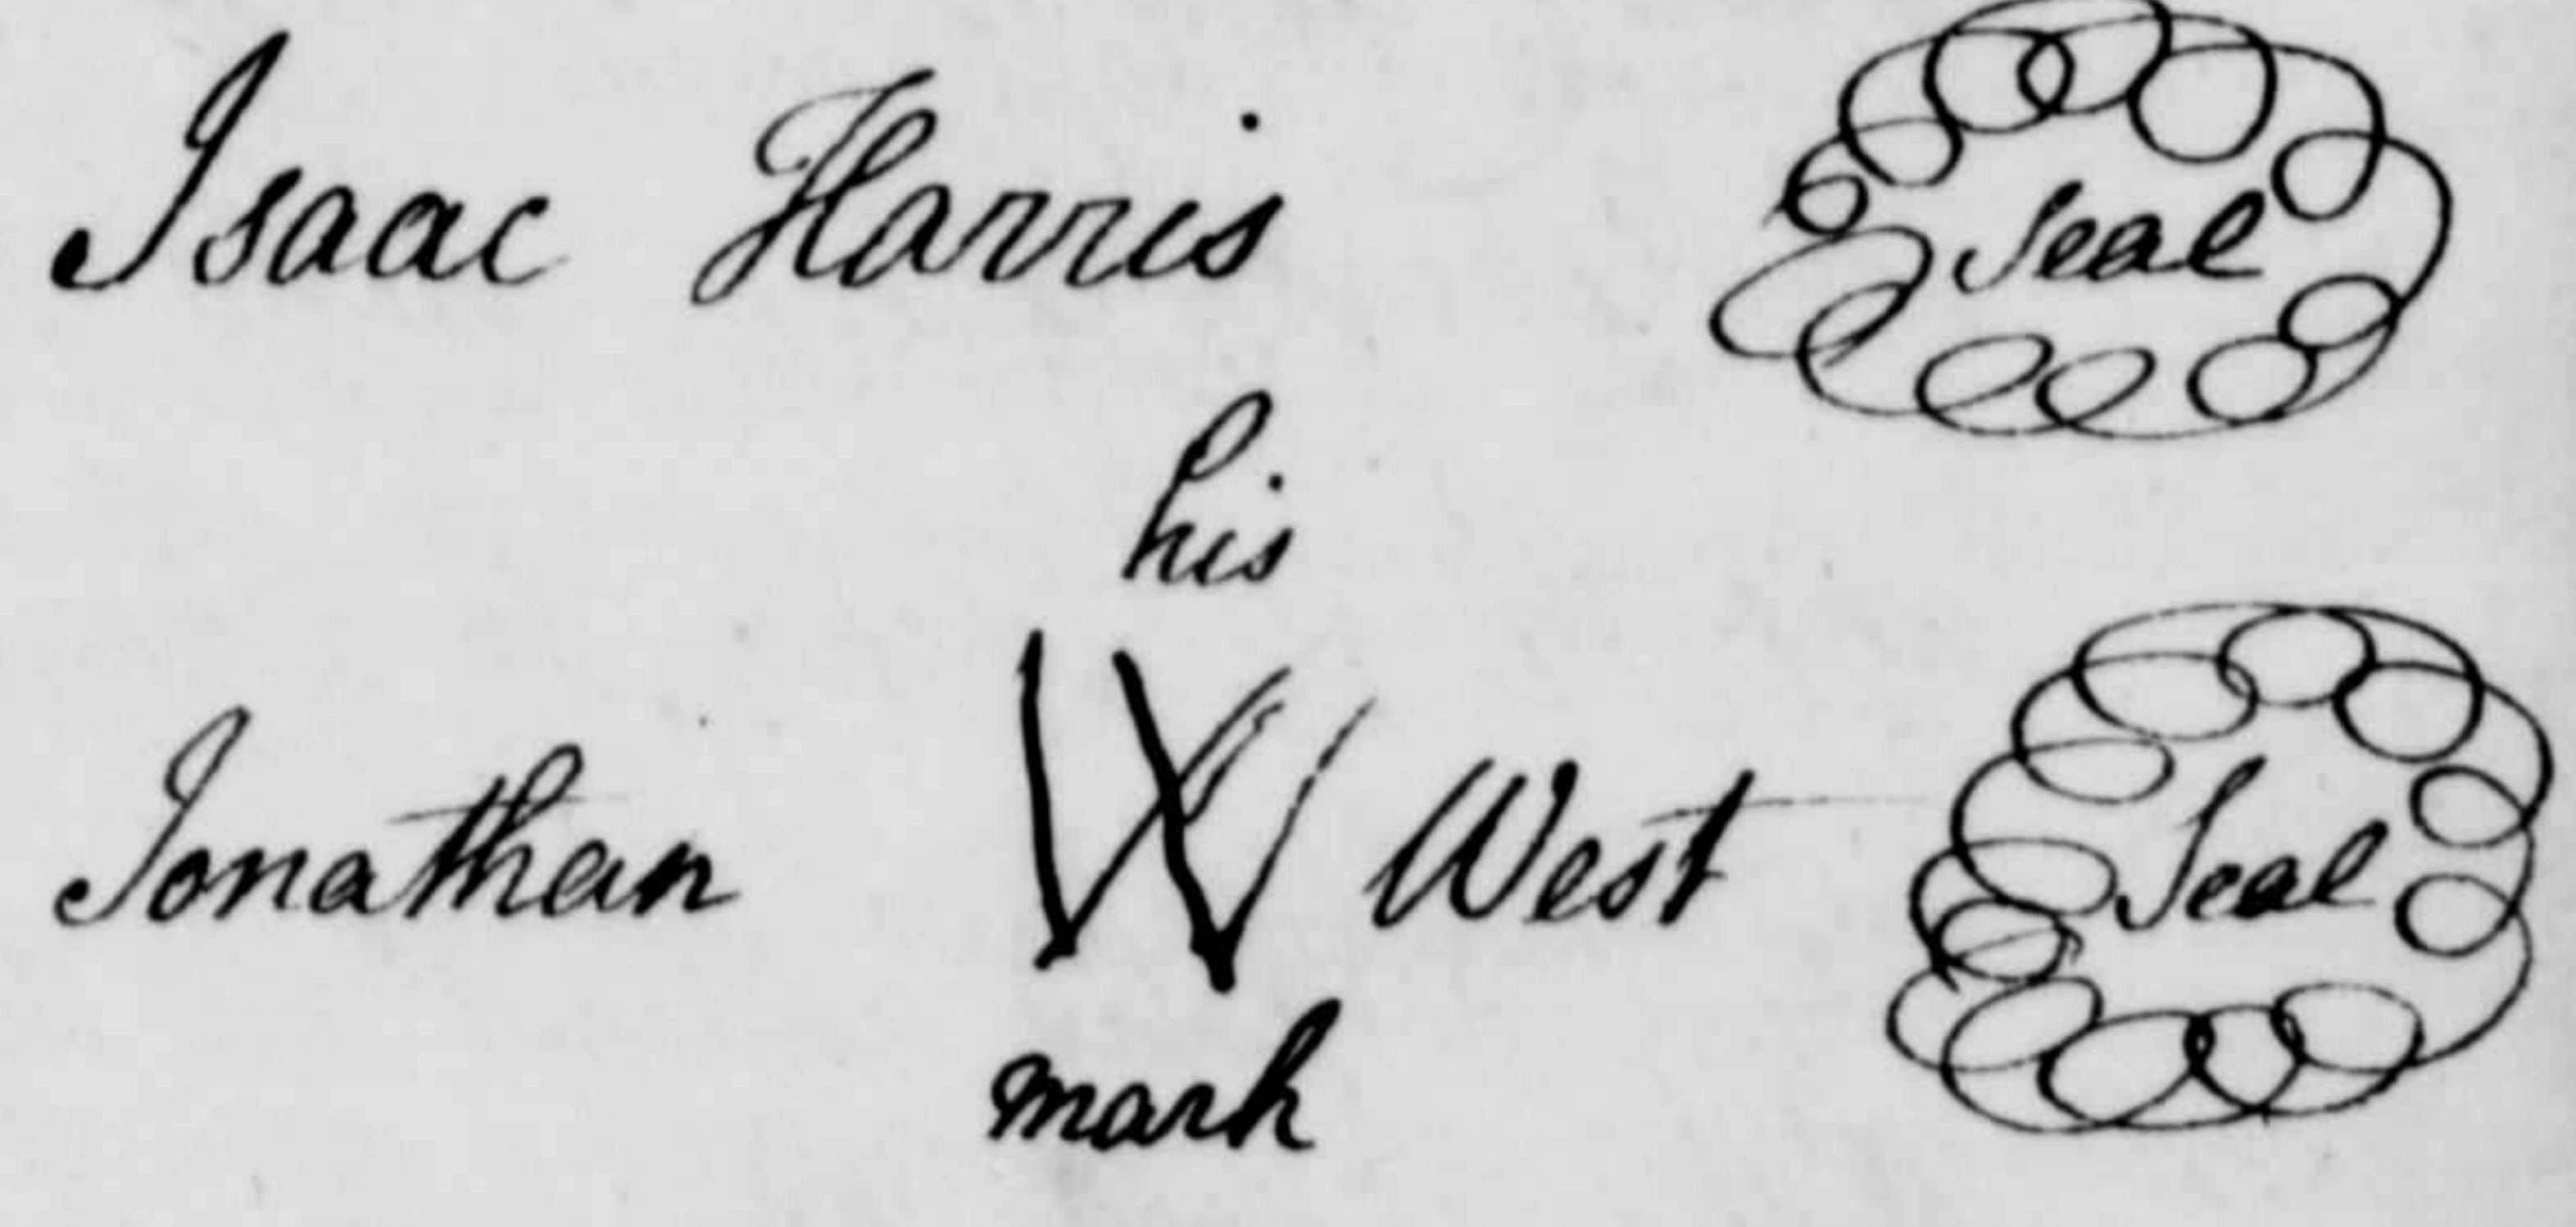 Isaac Harris Seal
his
Jonathan W West Seal
mark